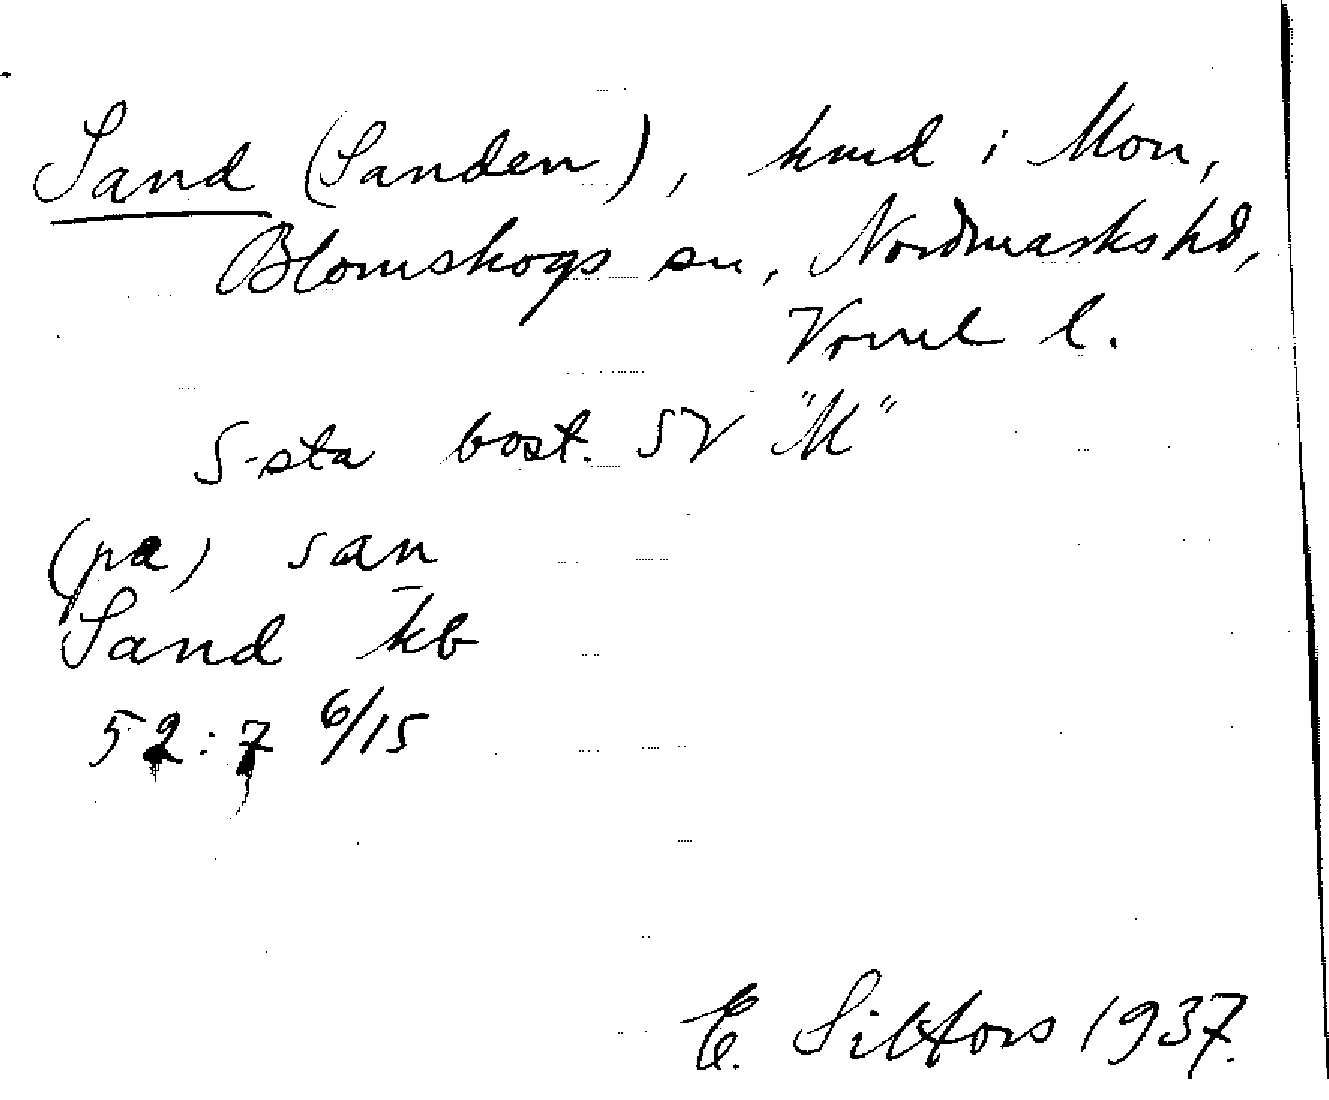 Sand (Sanden), hmd i Mon,
Blomskogs sn, Nordmarks hd,
Vrml l.
S-sta bost. SV "M"
(pa) san
Sand kb
52:7 6/15
E. Sillfors 1937.